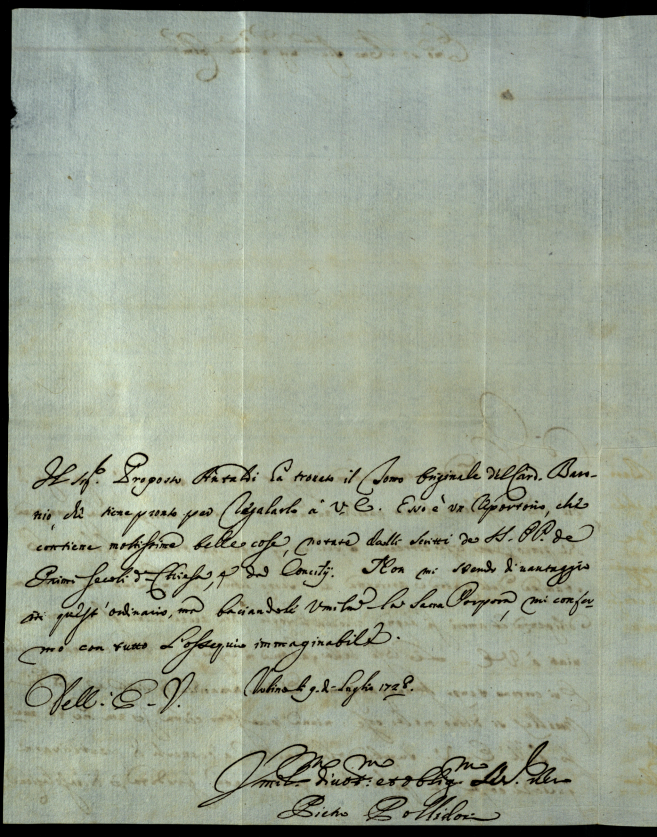 Il Sig.r Proposto Antaldi ha trovato il Tomo Originale del Card. Baro-
nio, che tiene pronto per regalarlo à V. E. Esso è un Repertorio, che
contiene moltissime belle cose, notate dalli scritti de SS. PP. de
Primi Secoli d. Chiesa, e dei Concilij. Non mi stendo di vantaggio
in quest'ordinario, ma baciandole umilm.te la Sacra Porpora, mi confer-
mo con tutto l'ossequio immaginabile.
Dell: E. V. Urbino li 9. di Luglio 172
Umil.mo divot.mo et oblig.mo Ser.
Pietro Pollidori